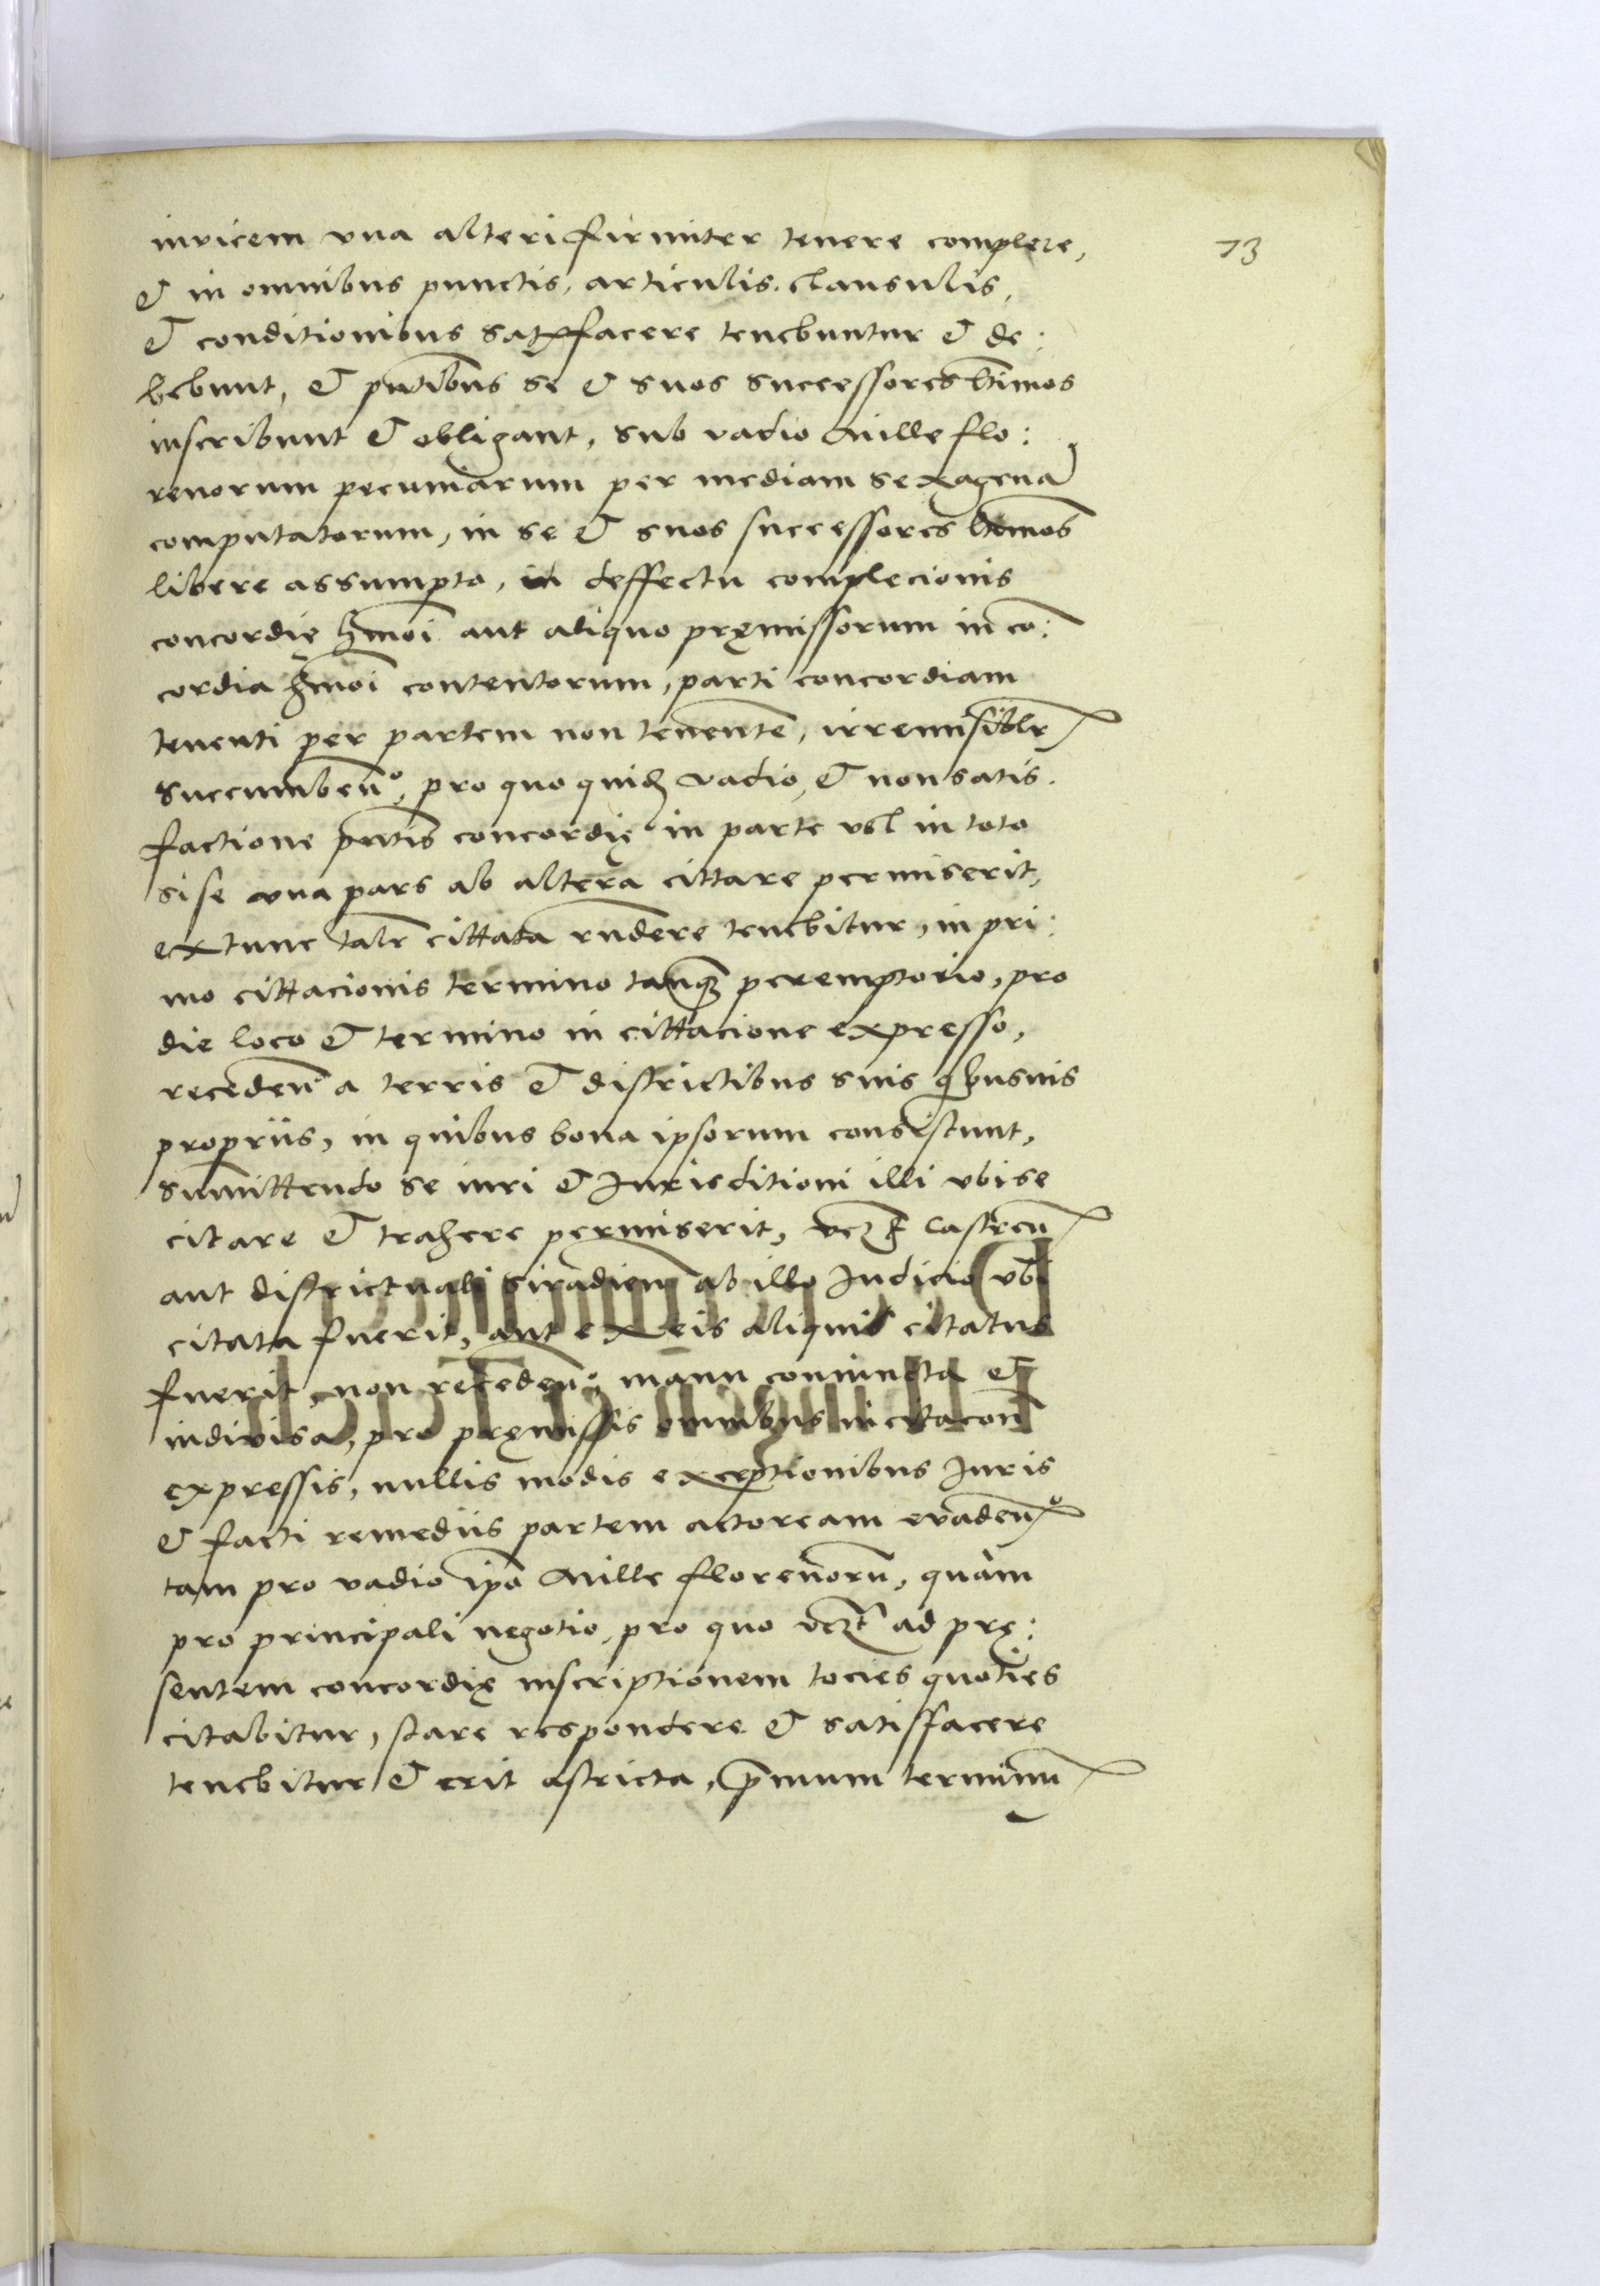 invicem vna alteri firmiter tenere complere,
73
et in omnibus punctis, articulis. clausulis,
et conditionibus satisfacere tenebuntur et de:
bebunt, et pntibus se et suos successores ltimos
inscribunt et obligant, sub vadio Mille flo:
renorum pecuniarum per mediam sexagena
computatorum, in se et suos successores ltimos
libere assumpto, in deffectu complecionis
concordię hmoi aut aliquo pręmissorum in co:
cordia hmoi contentorum, parti concordiam
tenenti per partem non tenente, irremisiblr
succumben°, pro quo quid vadio, et non satis.
factione pntis concordię in parte vel in toto
si se vna pars ab altera cittare permiserit,
ex tunc talr cittata rndere tenebitur, in pri:
mo cittacionis termino tanq peremptorio, pro
die loco et termino in cittacione expresso,
receden° a terris et districtibus suis qbusuis
propriis, in quibus bona ipsorum consistunt,
summittendo se iuri et Jurisditioni illi vbi se
citare et trahere permiserit, vczt Castren
aut districtuali Siradiem ab illo Judicio vbi
citata fuerit, aut ex eis aliquis citatus
fuerit, non receden°, manu coniuncta et
indivisa, pro pręmissis omnibus in citacon
expressis, nullis modis exceptionibus Juris
et facti remediis partem actoream evaden°
tam pro vadio ipo Mille florenoru, quàm
pro principali negotio, pro quo vczt ad prę:
sentem concordię inscriptionem tocies quoties
citabitur, stare respondere et satisfacere
tenebitur et erit astricta, pmum terminu